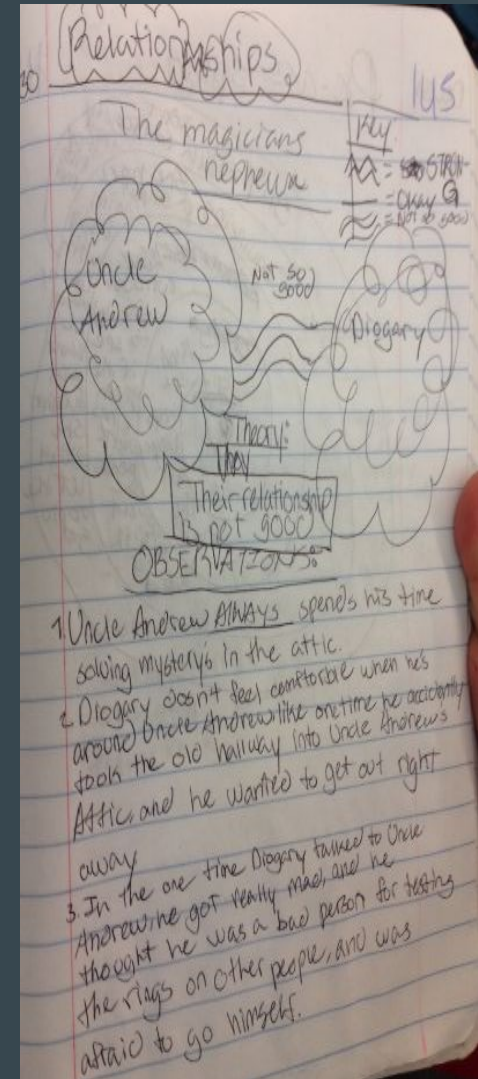 30
Relationships
145
The magicians
nephew
Key
= STRONG
= Okay
= Not so good
Uncle
Andrew
Not so
good
Diogary
Theory:
They
Their relationship
is not good
OBSERVATIONS:
1. Uncle Andrew ALWAYS spends his time
solving mystery's in the attic.
2. Diogary dosn't feel comftorble when he's
around Uncle Andrew like one time he accidently
took the old hallway into Uncle Andrew's
Attic, and he wanted to get out right
away
3. In the one time Diogary talked to Uncle
Andrew, he got really mad, and he
thought he was a bad person for testing
the rings on other people, and was
afraid to go himself.